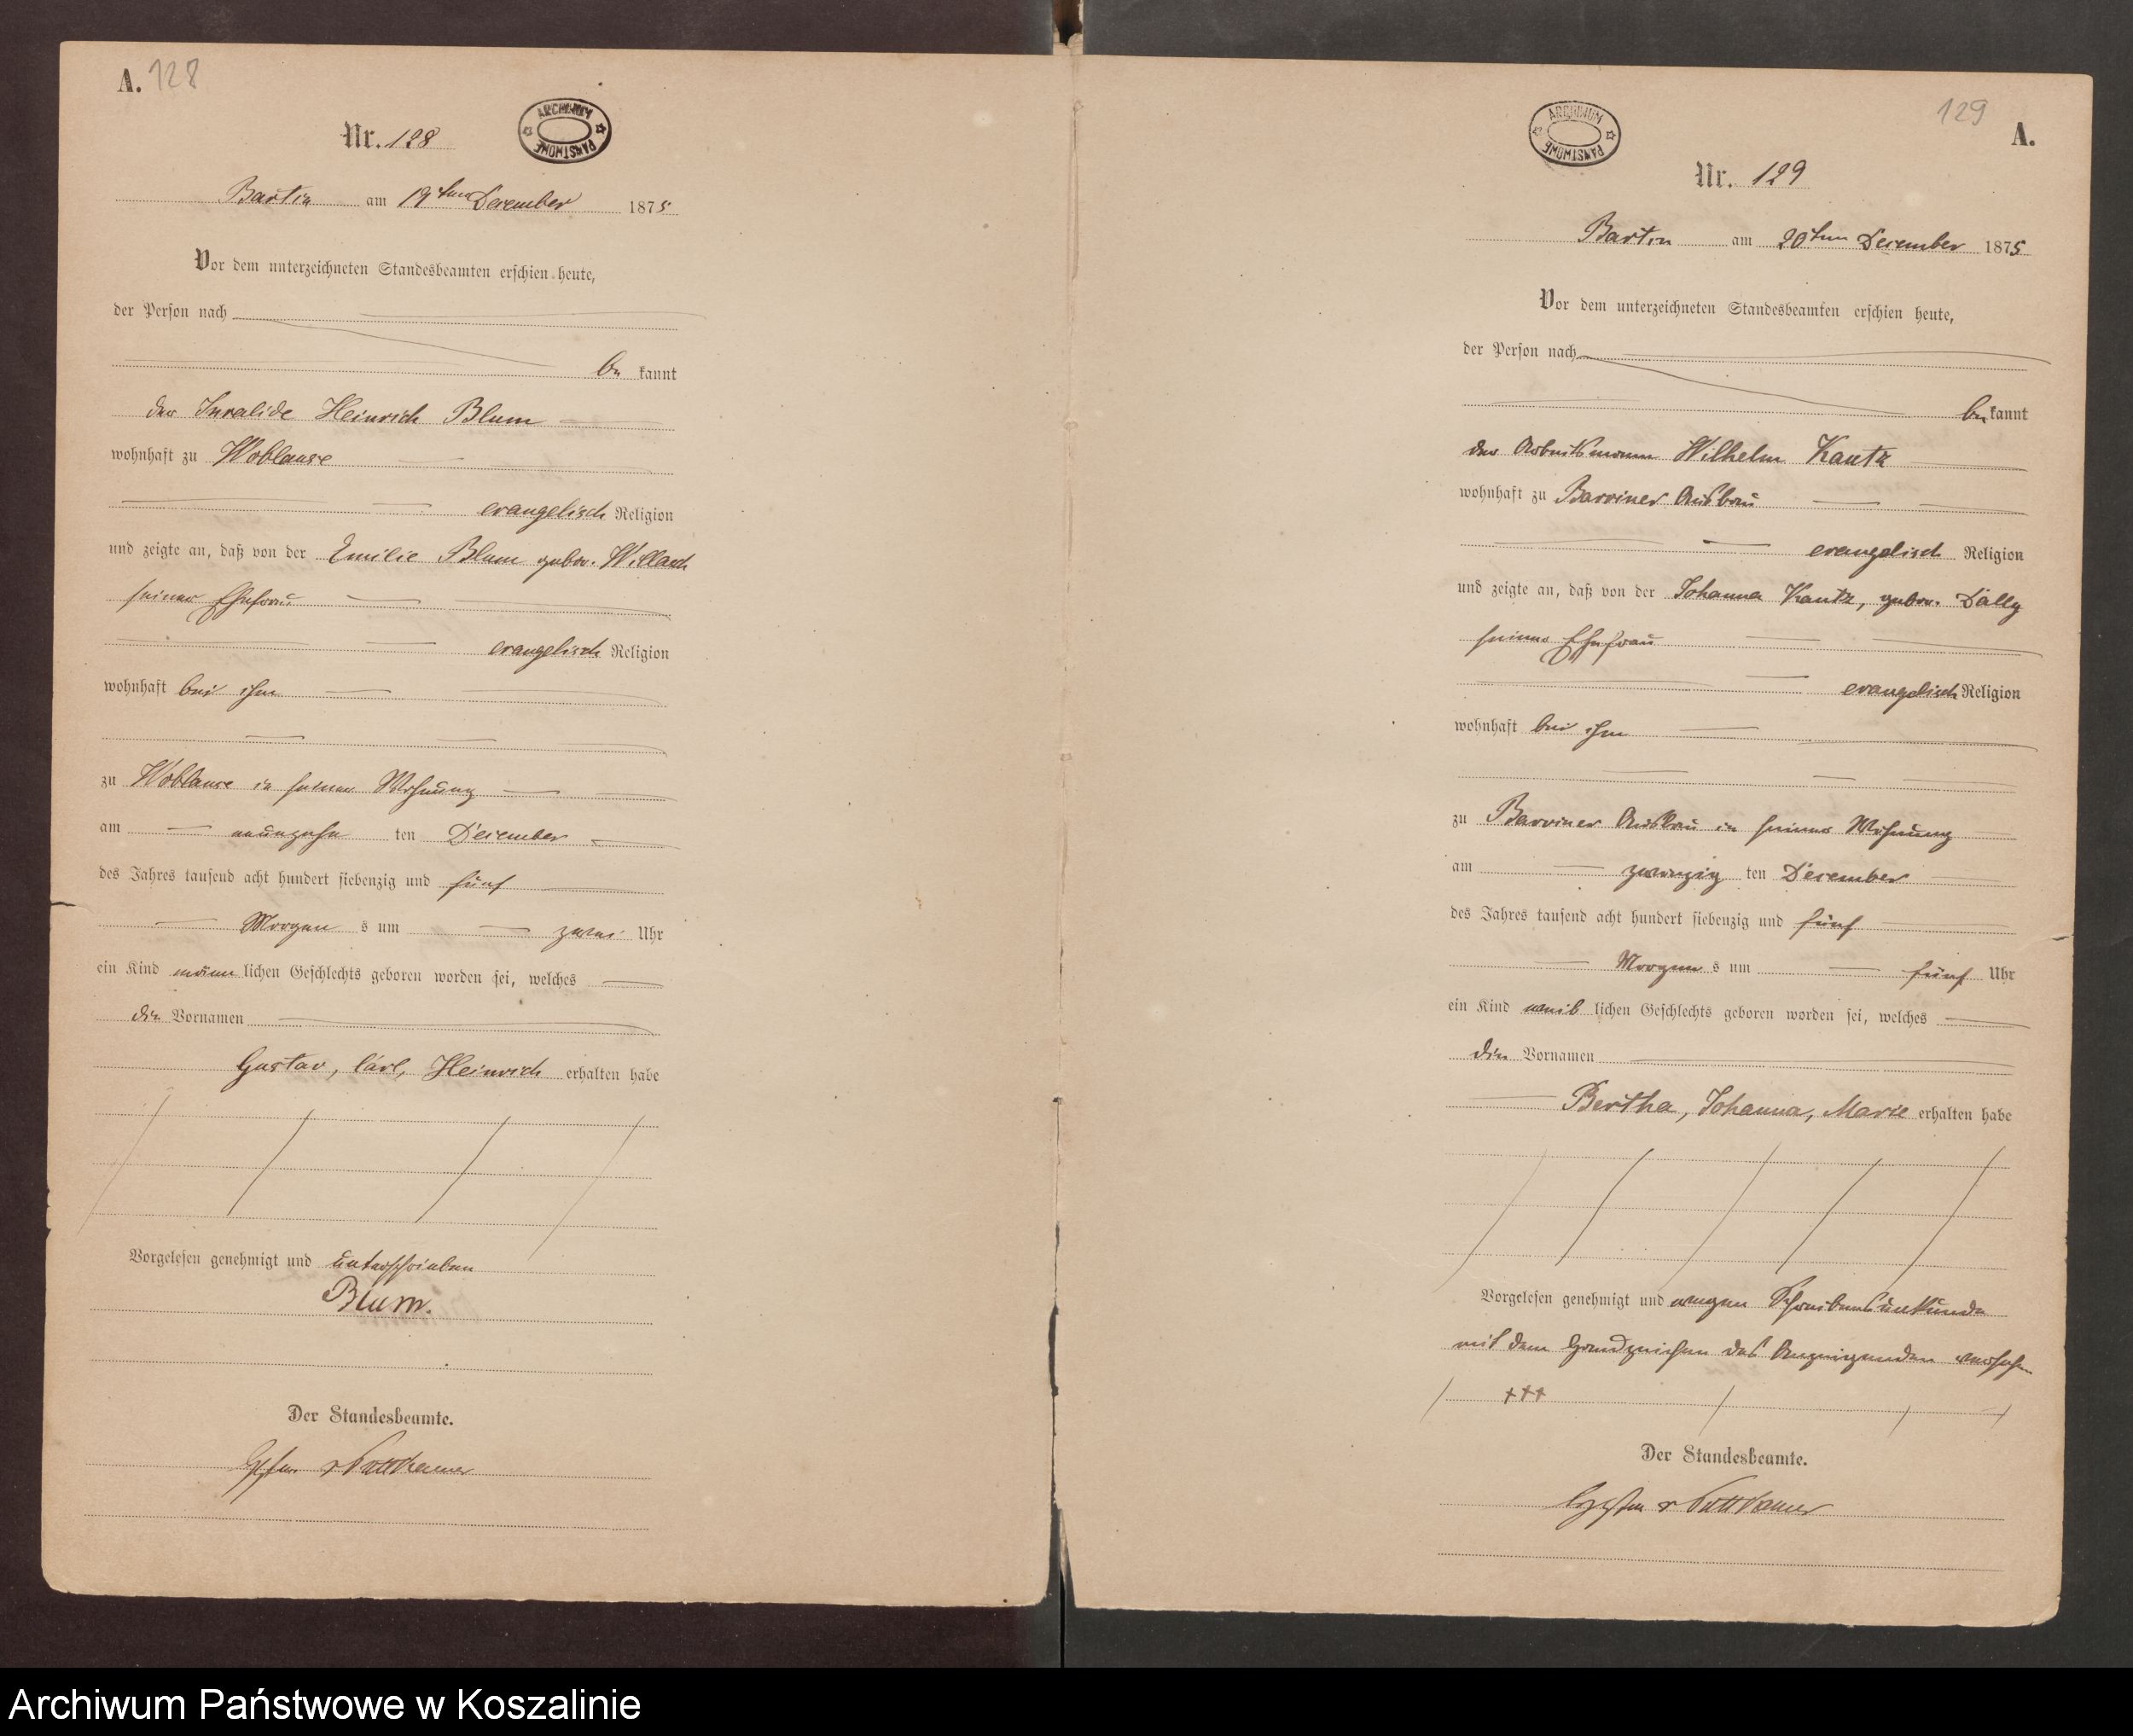 A. 128
Nr. 128
ARCHIWUM PAŃSTWOWE
Bartin am 19ten December 1875
Vor dem unterzeichneten Standesbeamten erschien heute,
der Person nach
be kannt
der Invalide Heinrich Blum
wohnhaft zu Woblanse
evangelisch Religion
und zeigte an, daß von der Emilie Blum gebor.
seiner Ehefrau
evangelisch Religion
wohnhaft bei ihm
zu Woblanse in seiner Wohnung
am neunzehn ten December
des Jahres tausend acht hundert siebenzig und fünf
Morgen s um zwei Uhr
ein Kind männ lichen Geschlechts geboren worden sei, welches
die Vornamen
Gustav, Carl, Heinrich erhalten habe
Vorgelesen genehmigt und unterschrieben
Blum.
Der Standesbeamte.
v Puttkamer
129
A.
ARCHIWUM PAŃSTWOWE
Nr. 129
Bartin am 20ten December 1875
Vor dem unterzeichneten Standesbeamten erschien heute,
der Person nach
be kannt
der Arbeitsmann Wilhelm Kautz
wohnhaft zu Barviner Ausbau
evangelisch Religion
und zeigte an, daß von der Johanna Kautz, gebor. Dally
seiner Ehefrau
evangelisch Religion
wohnhaft bei ihm
zu Barviner Ausbau in seiner Wohnung
am zwanzig ten December
des Jahres tausend acht hundert siebenzig und fünf
Morgen s um fünf Uhr
ein Kind weib lichen Geschlechts geboren worden sei, welches
die Vornamen
Bertha, Johanna, Marie erhalten habe
Vorgelesen genehmigt und wegen Schreibensunkunde
mit dem Handzeichen des Anzeigenden versehen
+++
Der Standesbeamte.
v Puttkamer
Archiwum Państwowe w Koszalinie